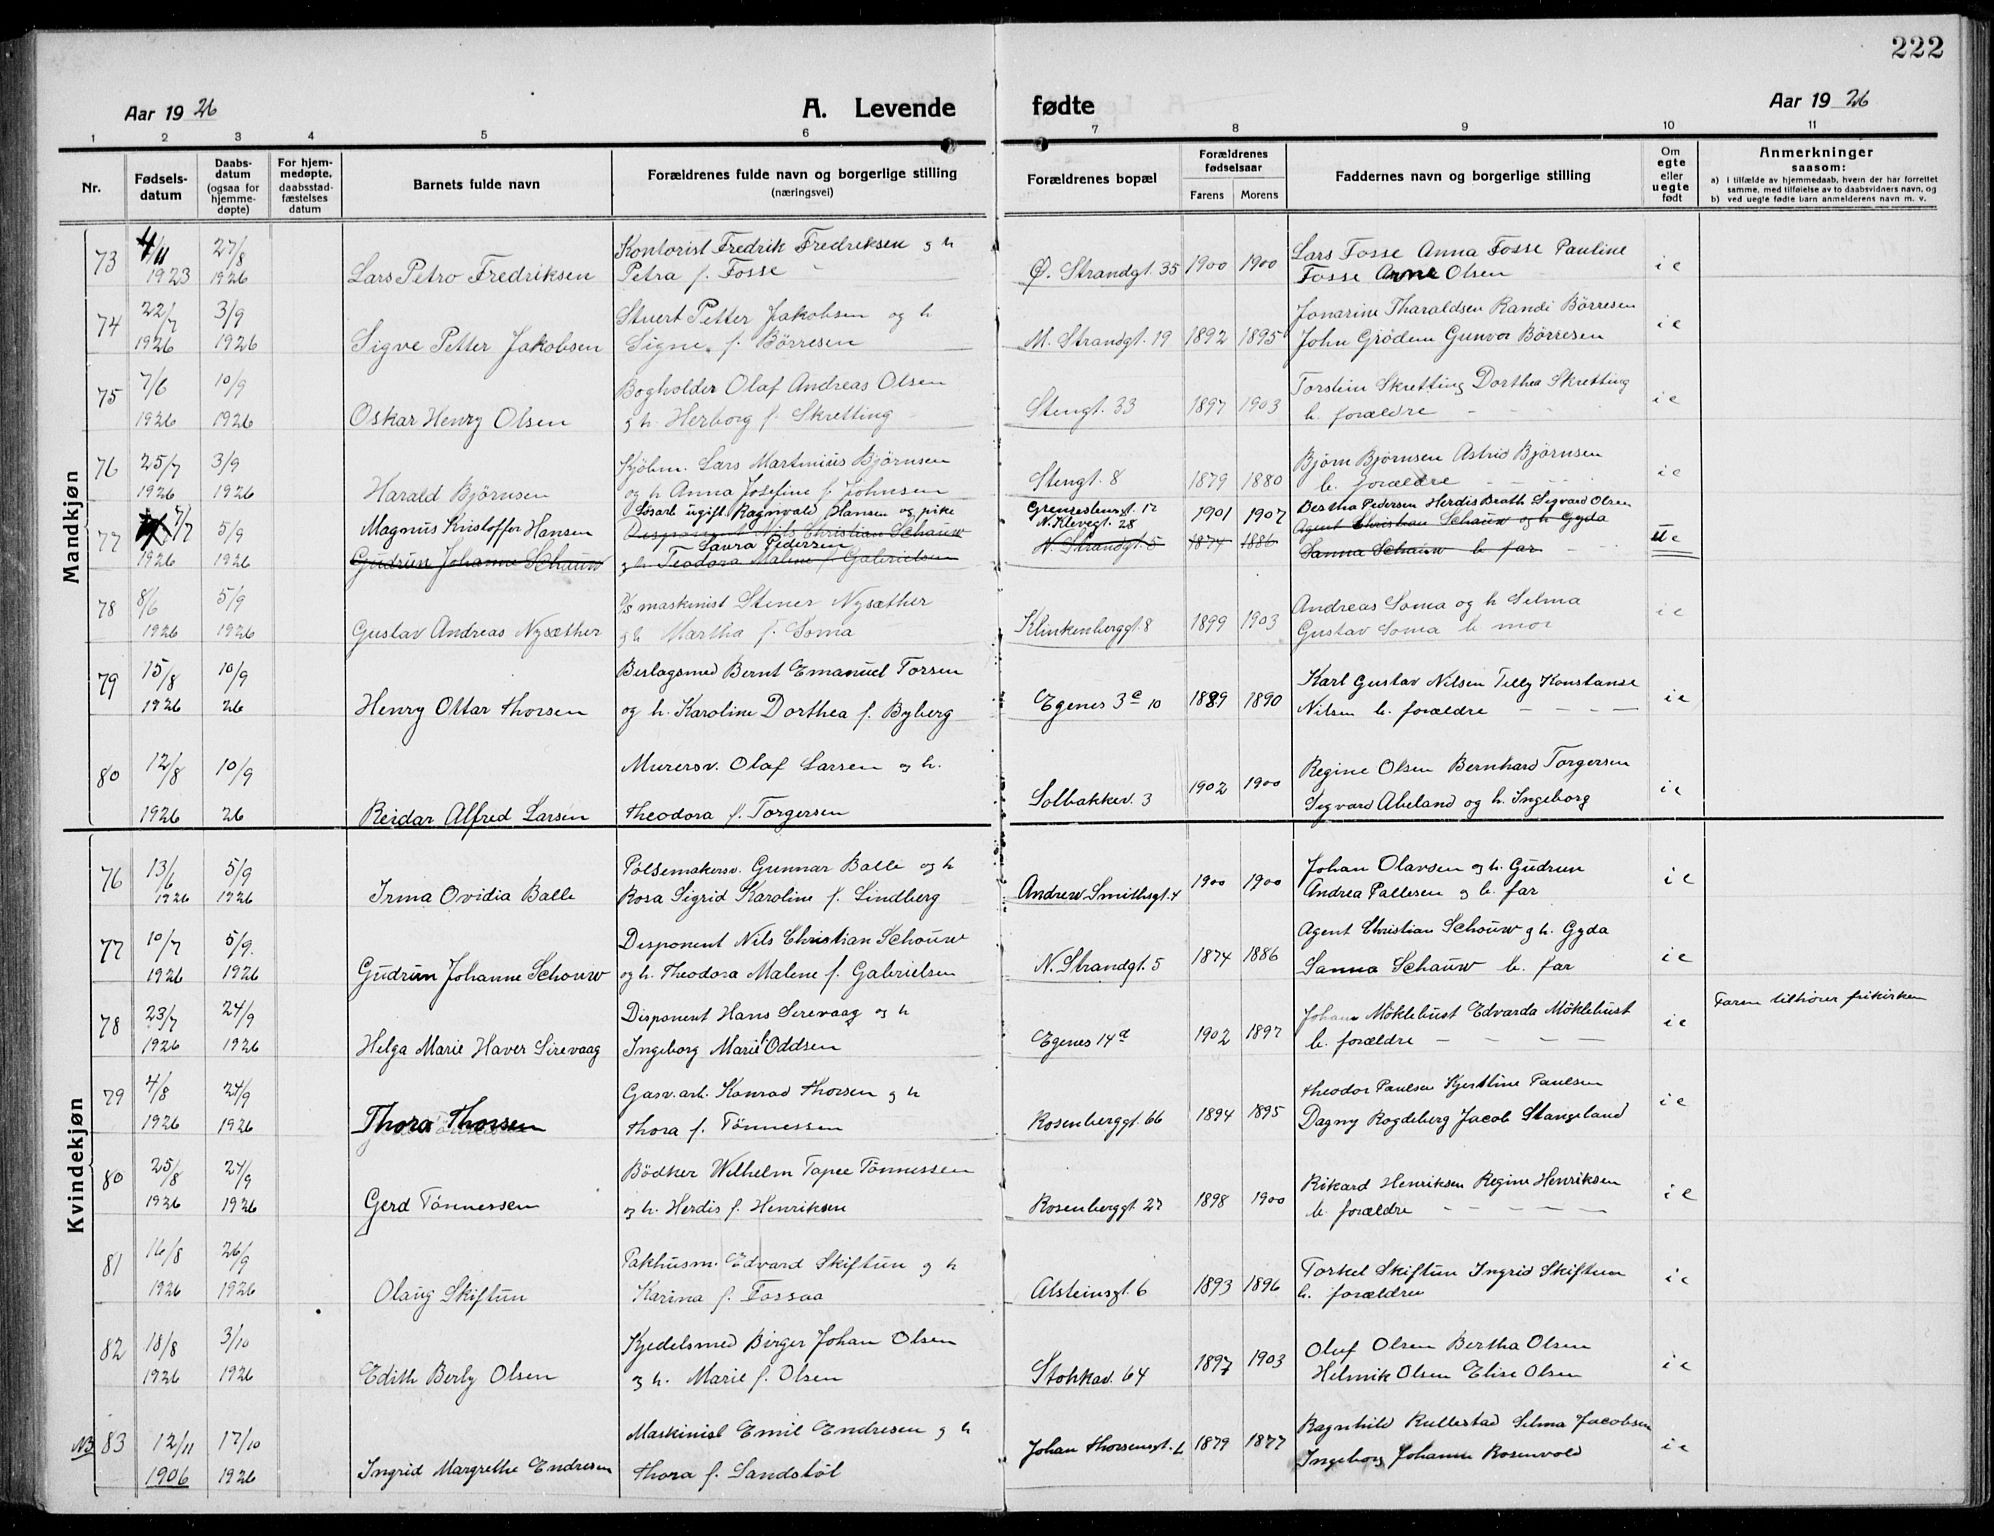 222
Aar 1926 A. Levende fødte Aar 1926
1 2 3 4 5 6 7 8 9 10 11
Nr.
Fødsels-
datum
Daabs-
datum
(ogsaa for
hjemme-
døpte)
For hjem-
medøpte,
daabsstad-
fæstelses
datum
Barnets fulde navn
Forældrenes fulde navn og borgerlige stilling
(næringsvei)
Forældrenes bopæl
Forældrenes
fødselsaar
Farens Morens
Faddernes navn og borgerlige stilling
Om
egte
eller
uegte
født
Anmerkninger
saasom:
a) i tilfælde av hjemmedaab, hvem der har forrettet
samme, med tilføielse av to daabsvidners navn, og
b) ved uegte fødte barn anmelderens navn m. v.
Mandkjøn
73 4/11 27/8 Kontorist Fredrik Fredriksen og h Lars Fosse Anna Fosse Pauline
1923 1926 Lars Petro Fredriksen Petra f. Fosse Ø. Strandgt. 35 1900 1900 Fosse Arne Olsen i e
74 22/7 3/9 Stuert Petter Jakobsen og h Jonarine Tharaldsen Randi Børresen
1926 1926 Sigve Petter Jakobsen Signe f. Børresen M. Strandgt. 19 1892 1895 John Grødem Gunvor Børresen i e
75 7/6 10/9 Bogholder Olaf Andreas Olsen Torstein Skretting Dorthea Skretting
1926 1926 Oskar Henry Olsen og h. Herborg f. Skretting Stengt. 33 1897 1903 b. forældre i e
76 25/7 3/9 Kjøbm. Lars Martinius Bjørnsen Bjørn Bjørnsen Astrid Bjørnsen
1926 1926 Harald Bjørnsen og h Anna Josefine f. Johnsen Stengt. 8 1879 1880 b. forældre i e
77 7/7 5/9 Magnus Kristoffer Hansen Løsarb ugift Ragnvald Hansen og pike N. Klevegt. 28 1901 1907 Bertha Pedersen Herdis Brath Sigvard Olsen
Disponent Nils Christian Schauw Agent Christian Schauw og h Gyda
Laura Pedersen
1926 1926 Gudrun Johanne Schauw og h Teodora Maline f. Gabrielsen N. Strandgt. 5 1874 1886 Sanna Schauw b. far u e
78 8/6 5/9 D/s maskinist Stener Nysæther Andreas Soma og h Selma
1926 1926 Gustav Andreas Nysæther og h Martha f. Soma Klinkenberggt. 8 1899 1903 Gustav Soma b. mor i e
79 15/8 10/9 Beslagsmed Bernt Emanuel Torsen Karl Gustav Nilsen Telly Konstanse
1926 26 Henry Ottar Thorsen og h. Karoline Dorthea f. Byberg Egenes 3e 10 1889 1890 Nilsen b. forældre i e
80 12/8 10/9 Murersv. Olaf Larsen og h. Regine Olsen Bernhard Torgersen
1926 26 Reidar Alfred Larsen Theodora f. Torgersen Solbakkev. 3 1902 1900 Sigvard Abeland og h. Ingeborg i e
Kvindekjøn
76 13/6 5/9 Pølsemakersv. Gunnar Balle og h Johan Olavsen og h. Gudrun
1926 1926 Irma Ovidia Balle Rosa Sigrid Karoline f. Lindberg Andrew Smithsgt. 4 1900 1900 Andrea Pallesen og b. far i e
77 10/7 5/9. Disponent Nils Christian Schouw Agent Christian Schouw og h. Gyda
1926 1926 Gudrun Johanne Schouw og h. Theodora Malene f. Gabrielsen N. Strandgt. 5 1874 1886 Sanna Schauw b. far i e
78 23/7 24/9 Disponent Hans Sirevaag og h Johan Møklebust Edvarda Møklebust Faren tilhører frikirken
1926 1926 Helga Marie Haver Sirevaag Ingeborg Marie f Oddsen Egenes 14d 1902 1897 b. forældre i e
79 4/8 24/9 Gasv. arb. Konrad Thorsen og h Theodor Paulsen Kjerstine Paulsen
1926 1926 Thora Thorsen Thora f. Tønnessen Rosenberggt. 66 1894 1895 Dagny Rogdeberg Jacob Stangeland i e
80 25/8 24/9 Bødker Wilhelm Tapee Tønnessen Rikard Henriksen Regine Henriksen
1926 1926 Gerd Tønnessen og h. Herdis f. Henriksen Rosenberggt. 27 1898 1900 b. forældre i e
81 16/8 26/9 Pakhusm. Edvard Skiftun og h Torkel Skiftun Ingrid Skiftun
1926 1926 Olaug Skiftun Karina f. Fossaa Alsteinsgt. 6 1893 1896 b. forældre i e
82 18/8 3/10 Kjedelsmed Birger Johan Olsen Oluf Olsen Bertha Olsen
1926 1926 Edith Berly Olsen og h. Marie f. Olsen Stokkav. 64 1897 1903 Helmik Olsen Elise Olsen i e
NB 83 12/11 17/10 Maskinist Emil Endresen og h Ragnhild Rullestad Selma Jacobsen
1906 1926 Ingrid Margrethe Endresen Thora f. Sandstøl Johan Thorsensgt. 1879 1877 Ingeborg Johanne Rosenvold i e